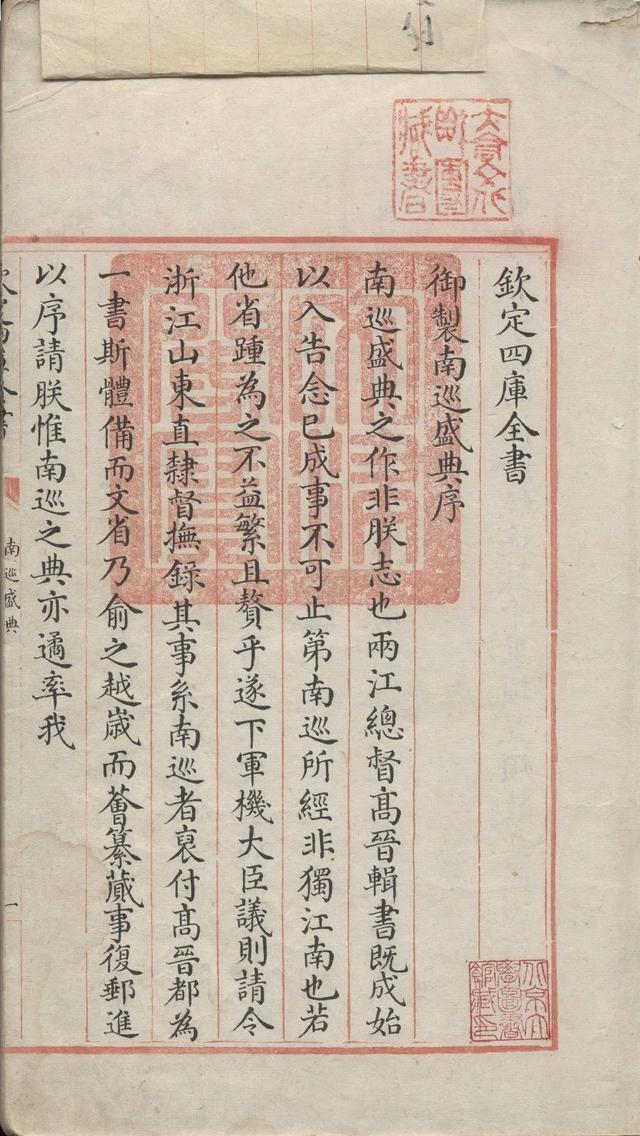 欽定四庫全書
御製南巡盛典序
南巡盛典之作非朕志也兩江總督髙晉輯書既成始
以入告念已成事不可止第南巡所經非獨江南也若
他省踵為之不益繁且贅乎遂下軍機大臣議則請令
浙江山東直隸督撫録其事系南巡者裒付髙晉都為
一書斯體備而文省乃俞之越嵗而薈纂蕆事復郵進
以序請朕惟南巡之典亦遹率我
欽定四庫全書
南巡盛典
一